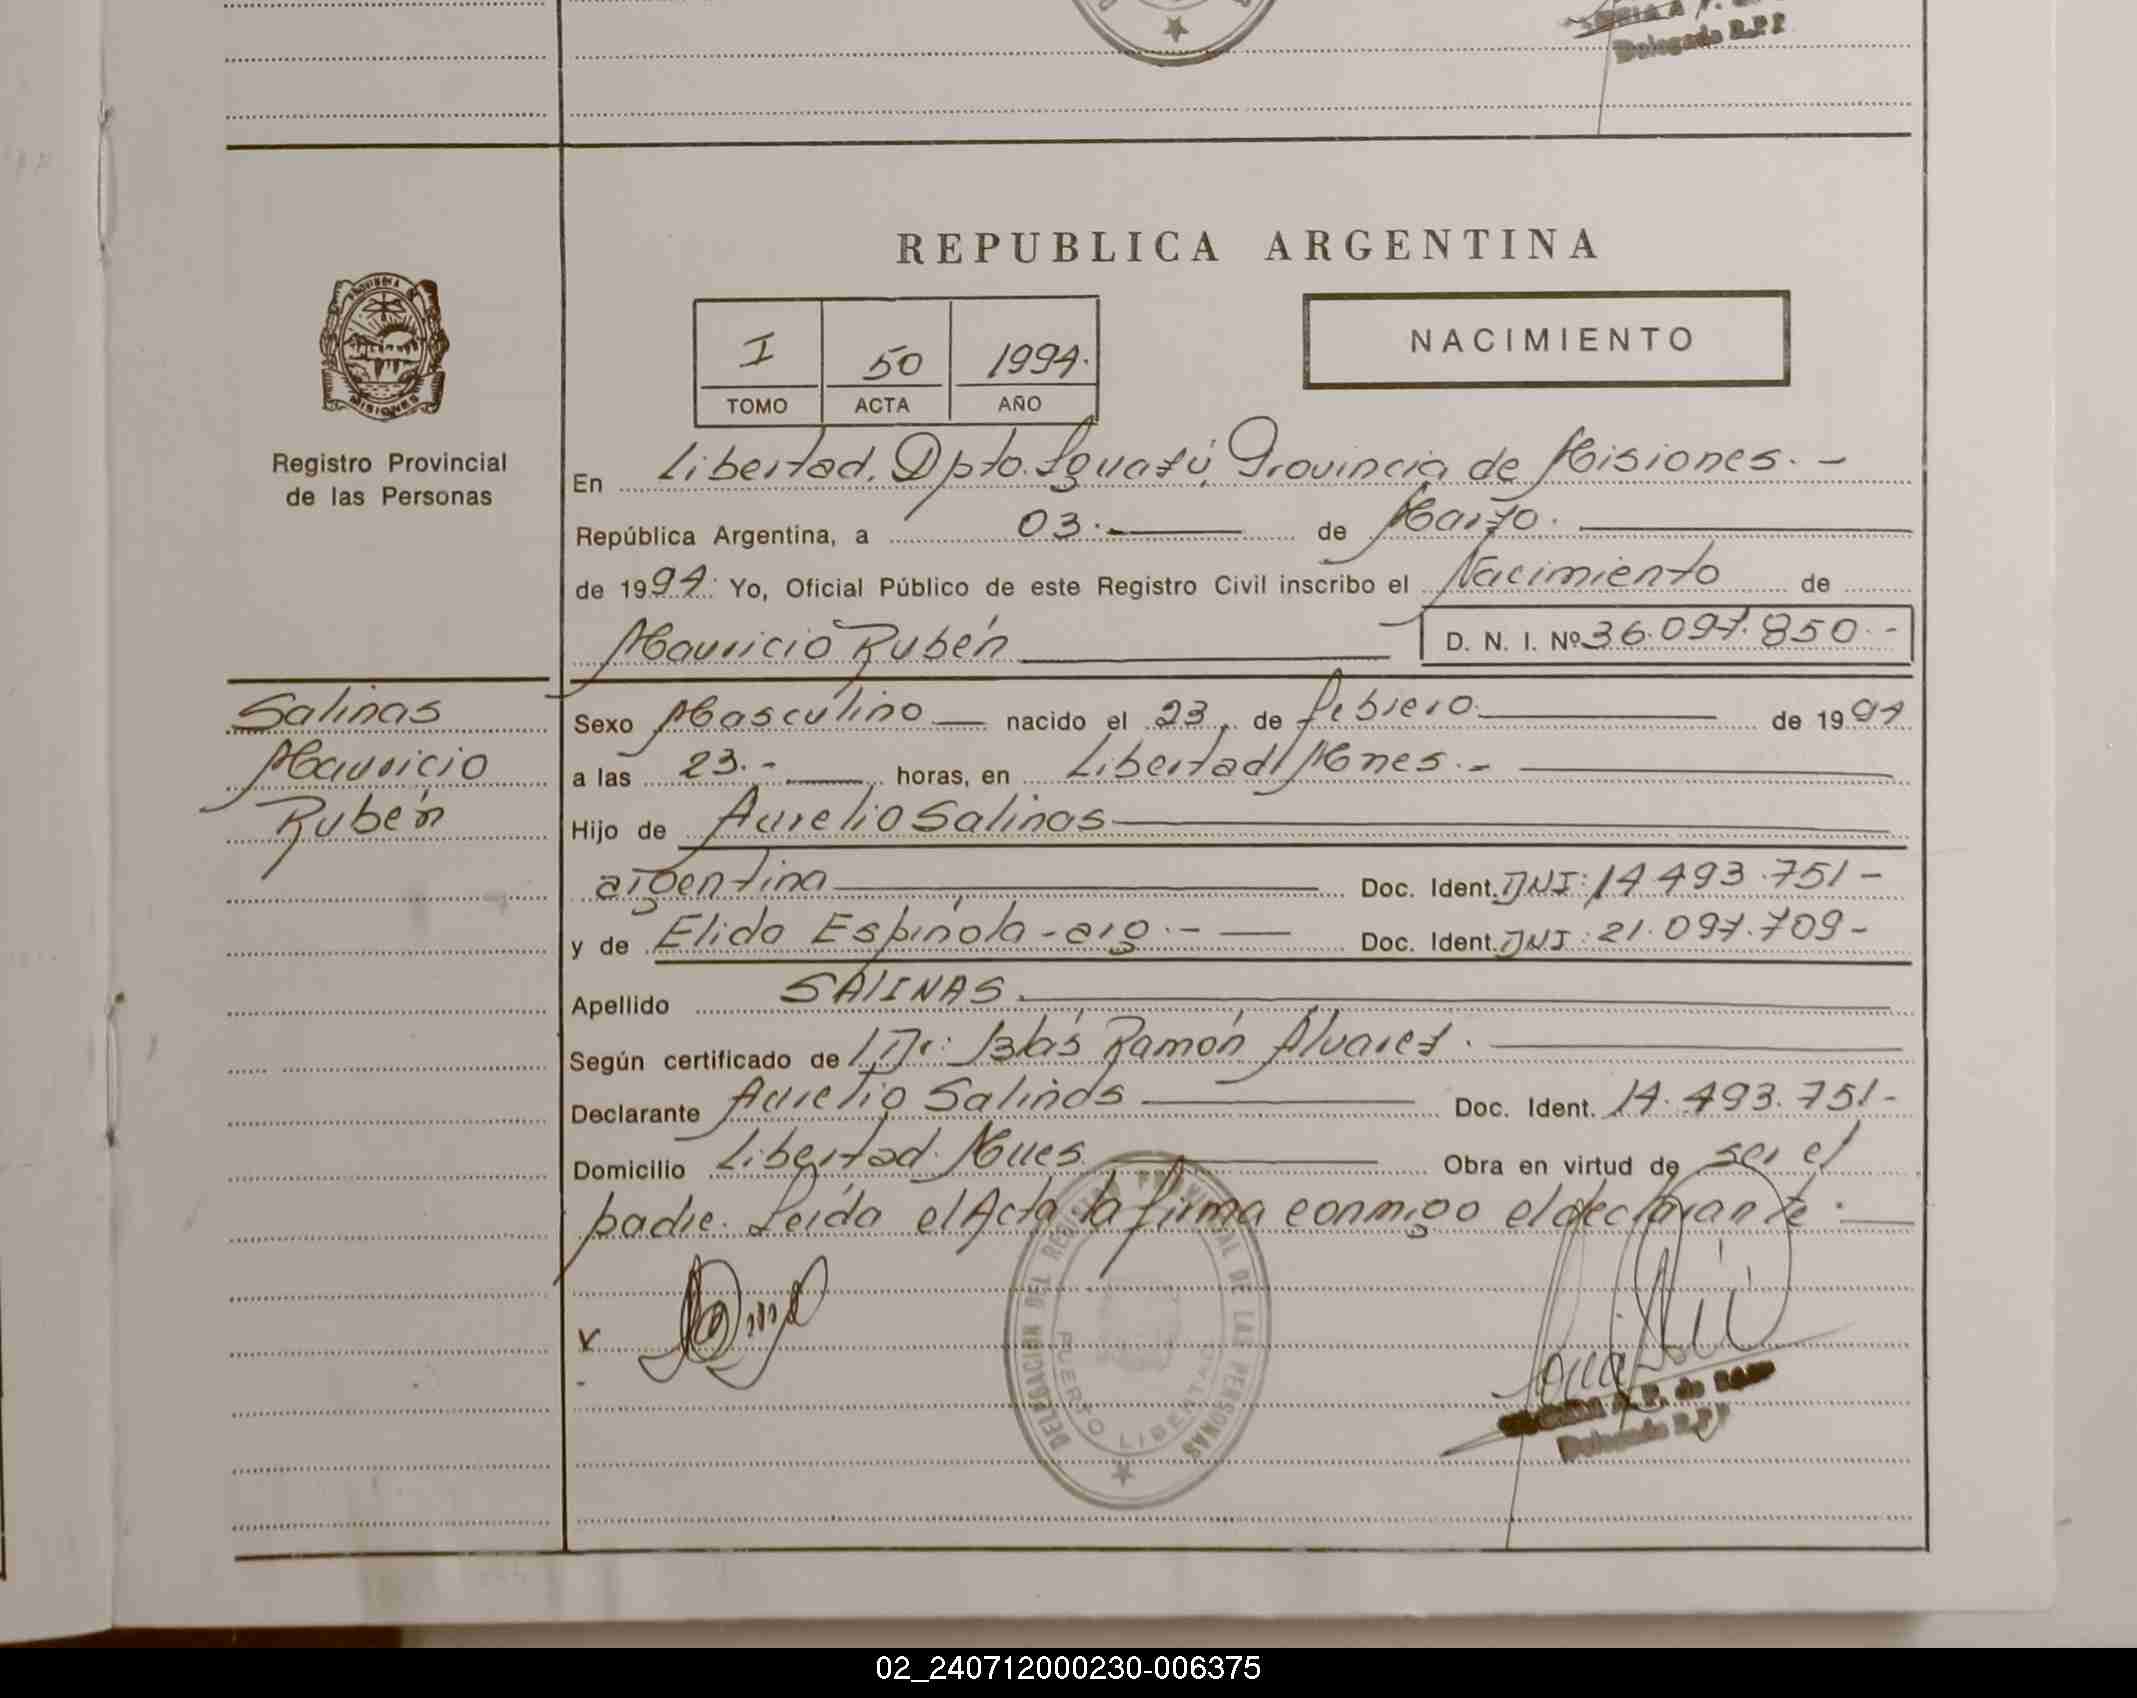 Delegado R.P.P.
REPUBLICA ARGENTINA
PROVINCIA DE
MISIONES
Registro Provincial
de las Personas
I 50 1994.
TOMO ACTA AÑO
NACIMIENTO
En Libertad, Dpto. Iguazú, Provincia de Misiones. -
República Argentina, a 03. - de Marzo.
de 1994. Yo, Oficial Público de este Registro Civil inscribo el Nacimiento de
Mauricio Rubén D. N. I. Nº 36.097.850. -
Salinas
Mauricio
Rubén
Sexo Masculino nacido el 23 de febrero de 1994
a las 23. - horas, en Libertad, Mnes. -
Hijo de Aurelio Salinas
argentina Doc. Ident. DNI: 14.493.751 -
y de Elida Espínola - arg. - Doc. Ident. DNI: 21.097.709 -
Apellido SALINAS.
Según certificado de Dr: Blás Ramón Álvarez.
Declarante Aurelio Salinas Doc. Ident. 14.493.751 -
Domicilio Libertad. Mnes Obra en virtud de ser el
padre. Leída el Acta la firma conmigo el declarante.
x
DELEGACION DEL REGISTRO PROVINCIAL DE LAS PERSONAS
PUERTO LIBERTAD
Delegado R.P.P.
02_240712000230-006375